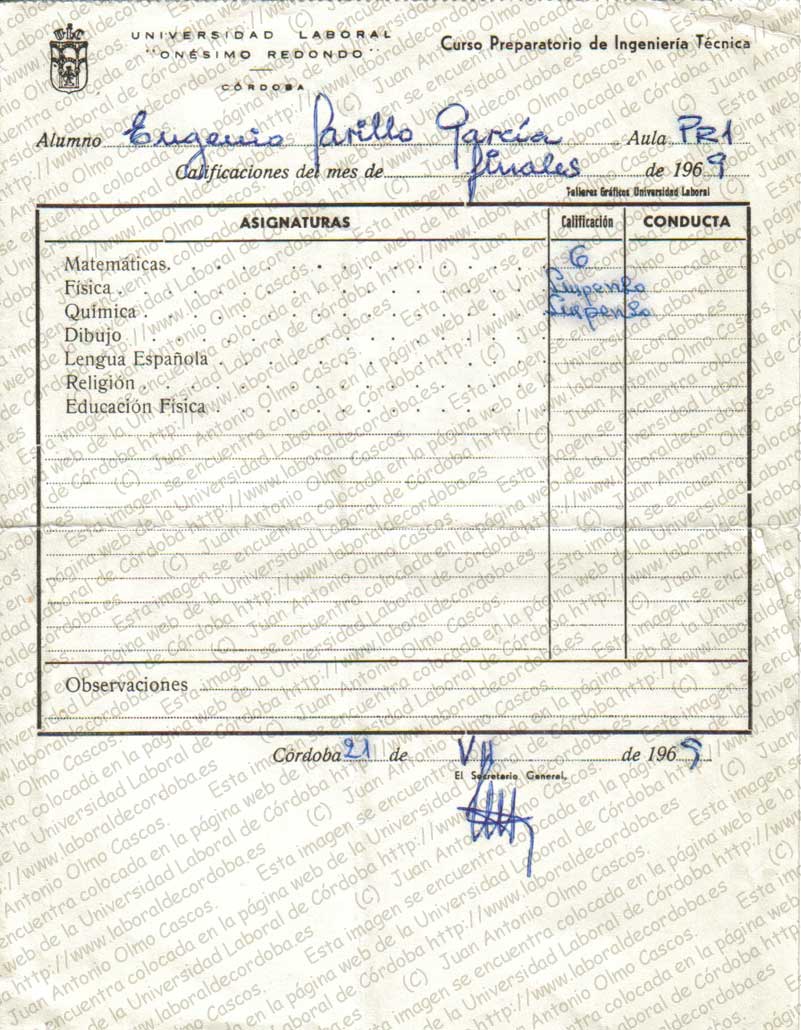 UNIVERSIDAD LABORAL
"ONÉSIMO REDONDO"
CÓRDOBA
Curso Preparatorio de Ingeniería Técnica
Alumno Eugenio Parillo García Aula PR1
Calificaciones del mes de finales de 1969
Talleres Gráficos Universidad Laboral
ASIGNATURAS Calificación CONDUCTA
Matemáticas 6
Física Suspenso
Química Suspenso
Dibujo
Lengua Española
Religión
Educación Física
Observaciones
Córdoba 21 de VII de 1969
El Secretario General,
(C) Juan Antonio Olmo Cascos. Esta imagen se encuentra colocada en la página web de la Universidad Laboral de Córdoba http://www.laboraldecordoba.es